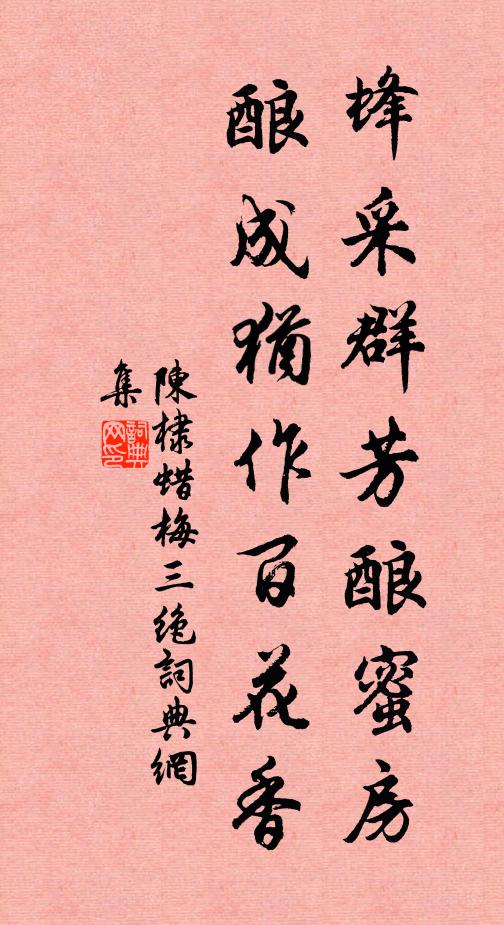 蜂采群芳酿蜜房
酿成犹作百花香
陳棣蜡梅三绝詞典網
集
詞典
网印